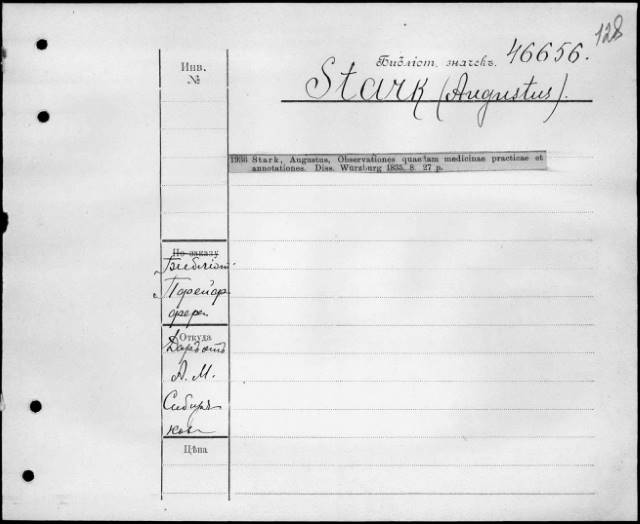 128
Библіот. значекъ. 46656.
Stark (Augustus).
Инв.
№
1936 Stark, Augustus, Observationes quaedam medicinae practicae et
annotationes. Diss. Würzburg 1835. 8. 27 p.
По заказу
Библіот.
Откуда
Даръ отъ
А. М.
Сибиря
кова
Цѣна